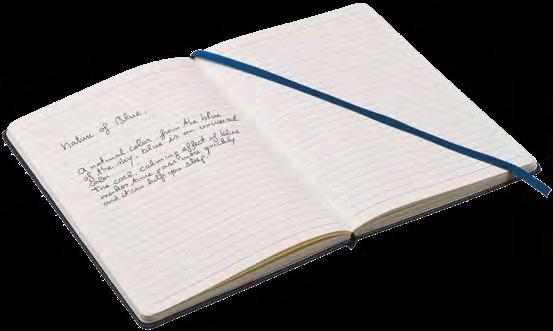 Nature of Blue.
A natural color from the blue
of the sky, blue is an universal
color.
The cool, calming effect of blue
makes time pass more quickly
and it can help you sleep.